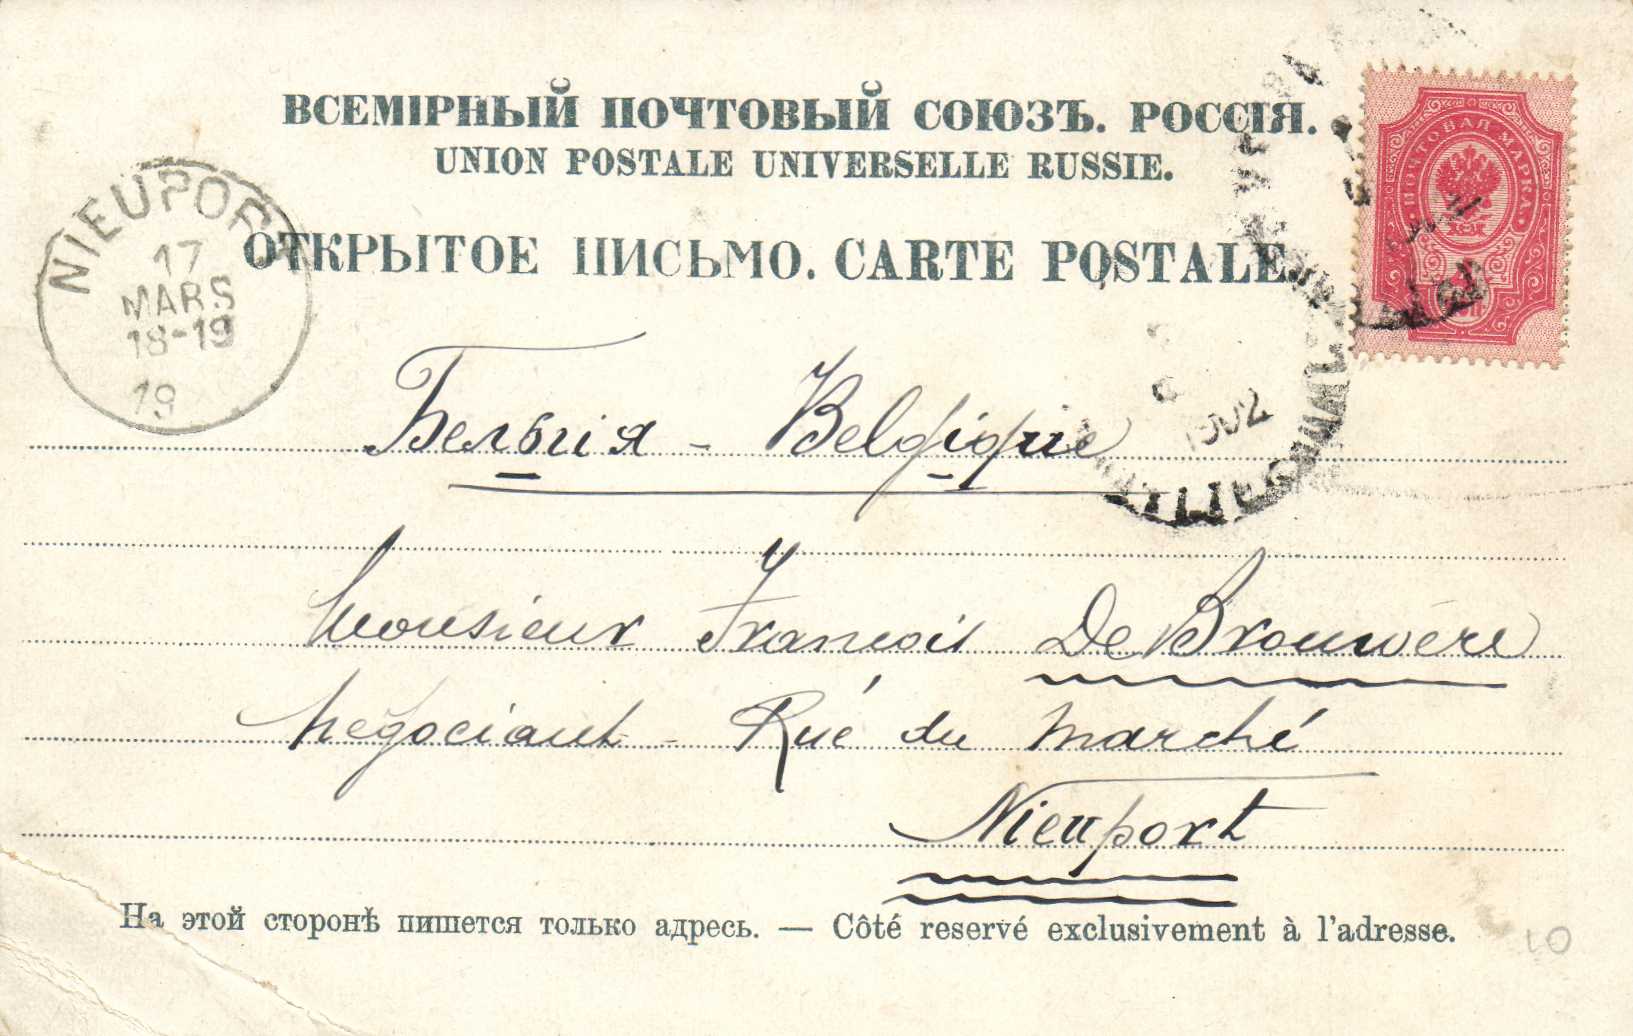 ВСЕМІРНЫЙ ПОЧТОВЫЙ СОЮЗЪ. РОССІЯ.
UNION POSTALE UNIVERSELLE RUSSIE.
ОТКРЫТОЕ ПИСЬМО. CARTE POSTALE.
ПОЧТОВАЯ МАРКА
NIEUPORT
17
MARS
18-19
19
1902
Бельгія - Belgique
Monsieur François De Brouwère
négociant - Rué du Marché
Nieuport
На этой сторонѣ пишется только адресь. — Côté reservé exclusivement à l'adresse.
10